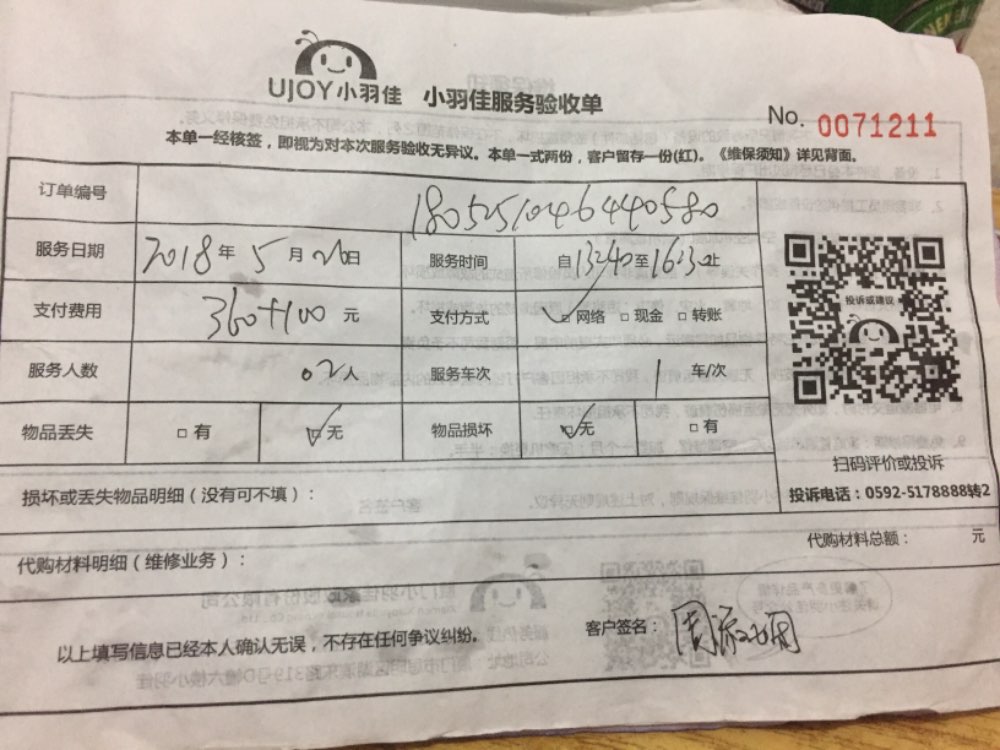 UJOY小羽佳 小羽佳服务验收单
No. 0071211
本单一经核签，即视为对本次服务验收无异议。本单一式两份，客户留存一份(红)。《维保须知》详见背面。
订单编号 180525104644 0580
服务日期 2018年5月26日 服务时间 自13240至1623止
支付费用 360+100元 支付方式 □网络 □现金 □转账
投诉或建议
服务人数 02人 服务车次 1 车/次
物品丢失 □有 □无 物品损坏 □无 □有
扫码评价或投诉
损坏或丢失物品明细（没有可不填）：
投诉电话：0592-5178888转2
代购材料明细（维修业务）：
代购材料总额： 元
以上填写信息已经本人确认无误，不存在任何争议纠纷。
客户签名：